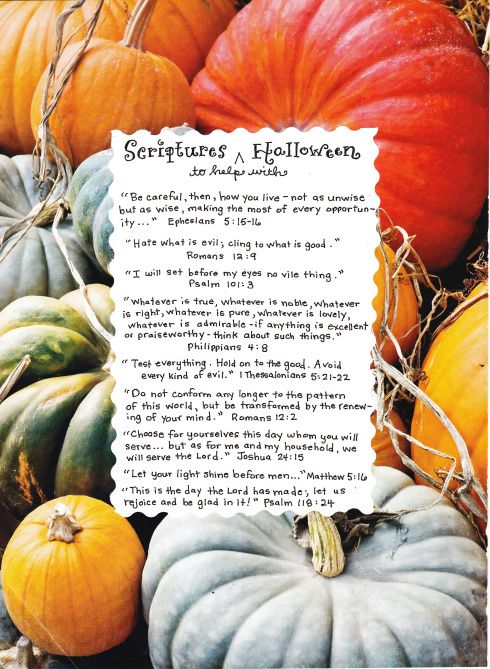 Scriptures ^ Halloween
to help with
"Be careful, then, how you live - not as unwise
but as wise, making the most of every opportun-
ity..." Ephesians 5:15-16
"Hate what is evil; cling to what is good."
Romans 12:9
"I will set before my eyes no vile thing."
Psalm 101:3
"Whatever is true, whatever is noble, whatever
is right, whatever is pure, whatever is lovely,
whatever is admirable - if anything is excellent
or praiseworthy - think about such things."
Philippians 4:8
"Test everything. Hold on to the good. Avoid
every kind of evil." 1 Thessalonians 5:21-22
"Do not conform any longer to the pattern
of this world, but be transformed by the renew-
ing of your mind." Romans 12:2
"Choose for yourselves this day whom you will
serve... but as for me and my household, we
will serve the Lord." Joshua 24:15
"Let your light shine before men..." Matthew 5:16
"This is the day the Lord has made; let us
rejoice and be glad in it!" Psalm 118:24